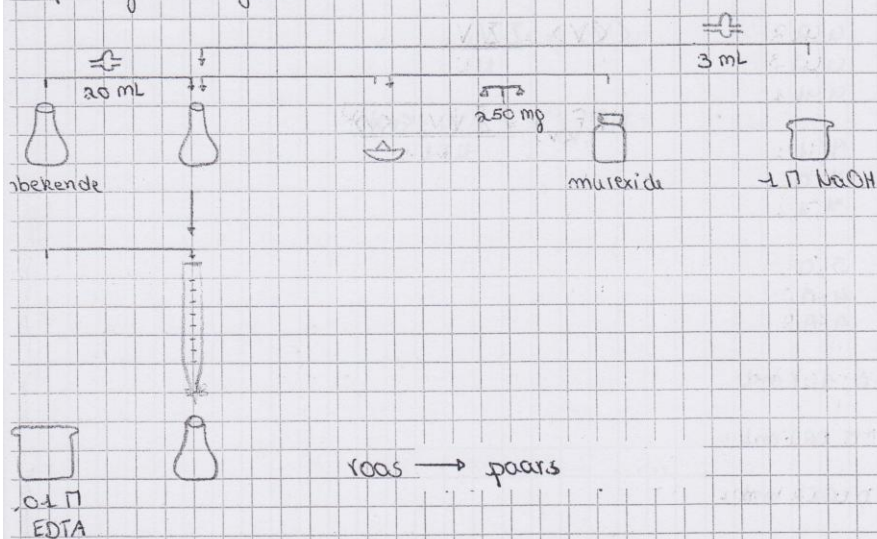 20 mL
3 mL
250 mg
bekende
murexide
1 M NaOH
roas → paars
,01 M
EDTA